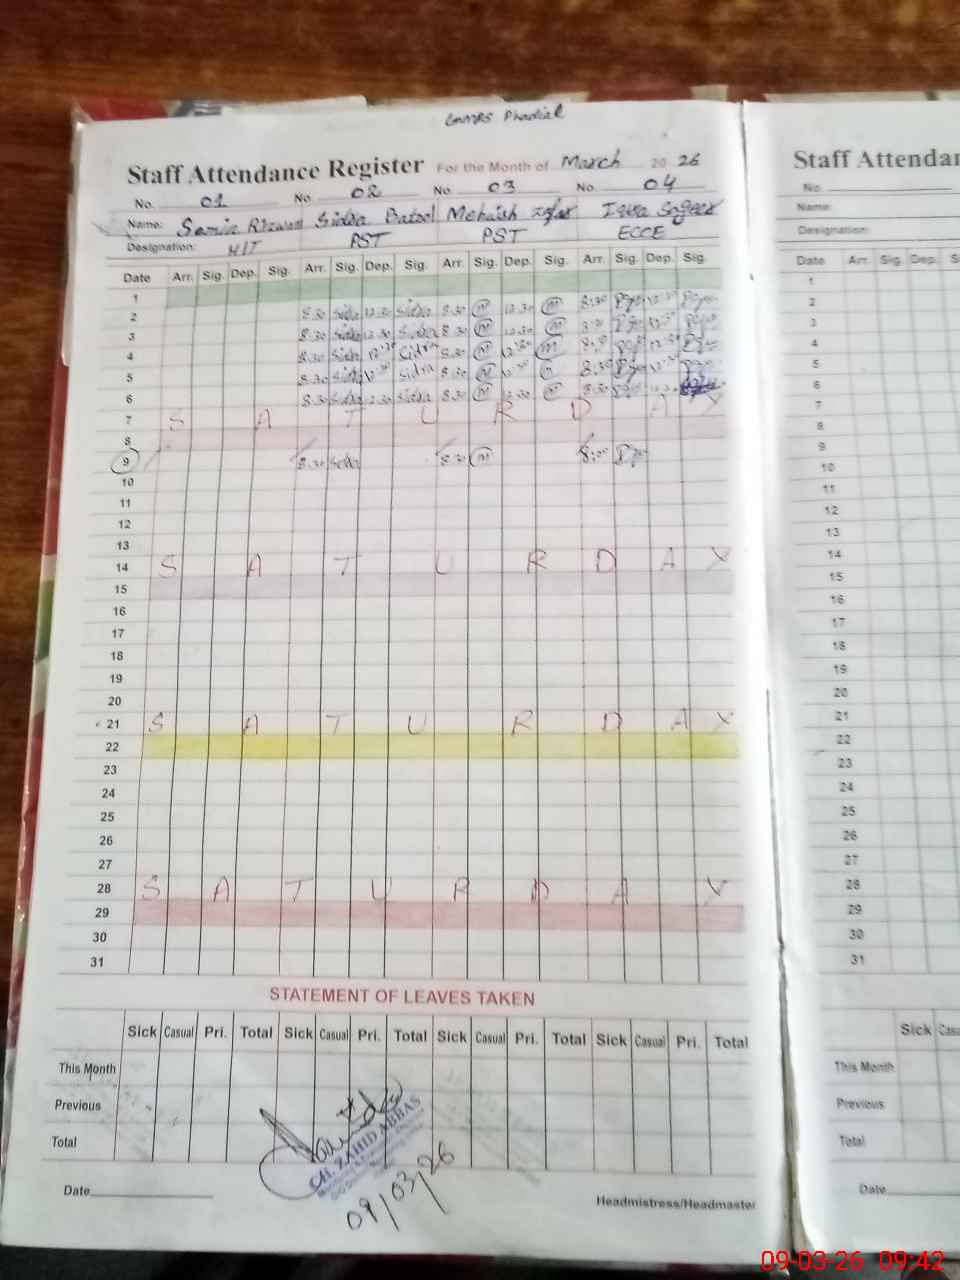 GMMPS Phadial
Staff Attendance Register For the Month of March 2026
No. 01 No. 02 No. 03 No. 04
Name: Samia Rizwan Sidra Batool Mehwish Zafar Iqra Sageer
Designation: HIT PST PST ECCE
Date Arr. Sig. Dep. Sig. Arr. Sig. Dep. Sig. Arr. Sig. Dep. Sig. Arr. Sig. Dep. Sig.
1
2 8:30 Sidra 12:30 Sidra 8:30 m 12:30 m 8:30 12:30
3 8:30 Sidra 12:30 Sidra 8:30 m 12:30 m 12:30
4 8:30 Sidra 12:30 Sidra 8:30 m 12:30 m 12:30
5 8:30 Sidra Sidra 8:30 m 8:30
6 8:30 Sidra 12:30 Sidra 8:30 m 12:30 m 8:30
7 S A T U R D A Y
8
9 8:30 Sidra 8:30 m 8:00
10
11
12
13
14 S A T U R D A Y
15
16
17
18
19
20
21 S A T U R D A Y
22
23
24
25
26
27
28 S A T U R D A Y
29
30
31
STATEMENT OF LEAVES TAKEN
Sick Casual Pri. Total Sick Casual Pri. Total Sick Casual Pri. Total Sick Casual Pri. Total
This Month
Previous
Total
CH. ZAHID ABBAS
09/03/26
Date
Headmistress/Headmaster
Staff Attendan
No.
Name:
Designation:
Date Arr. Sig. Dep. S
1
2
3
4
5
6
7
8
9
10
11
12
13
14
15
16
17
18
19
20
21
22
23
24
25
26
27
28
29
30
31
Sick Cas
This Month
Previous
Total
Date
09-03-26 09:42